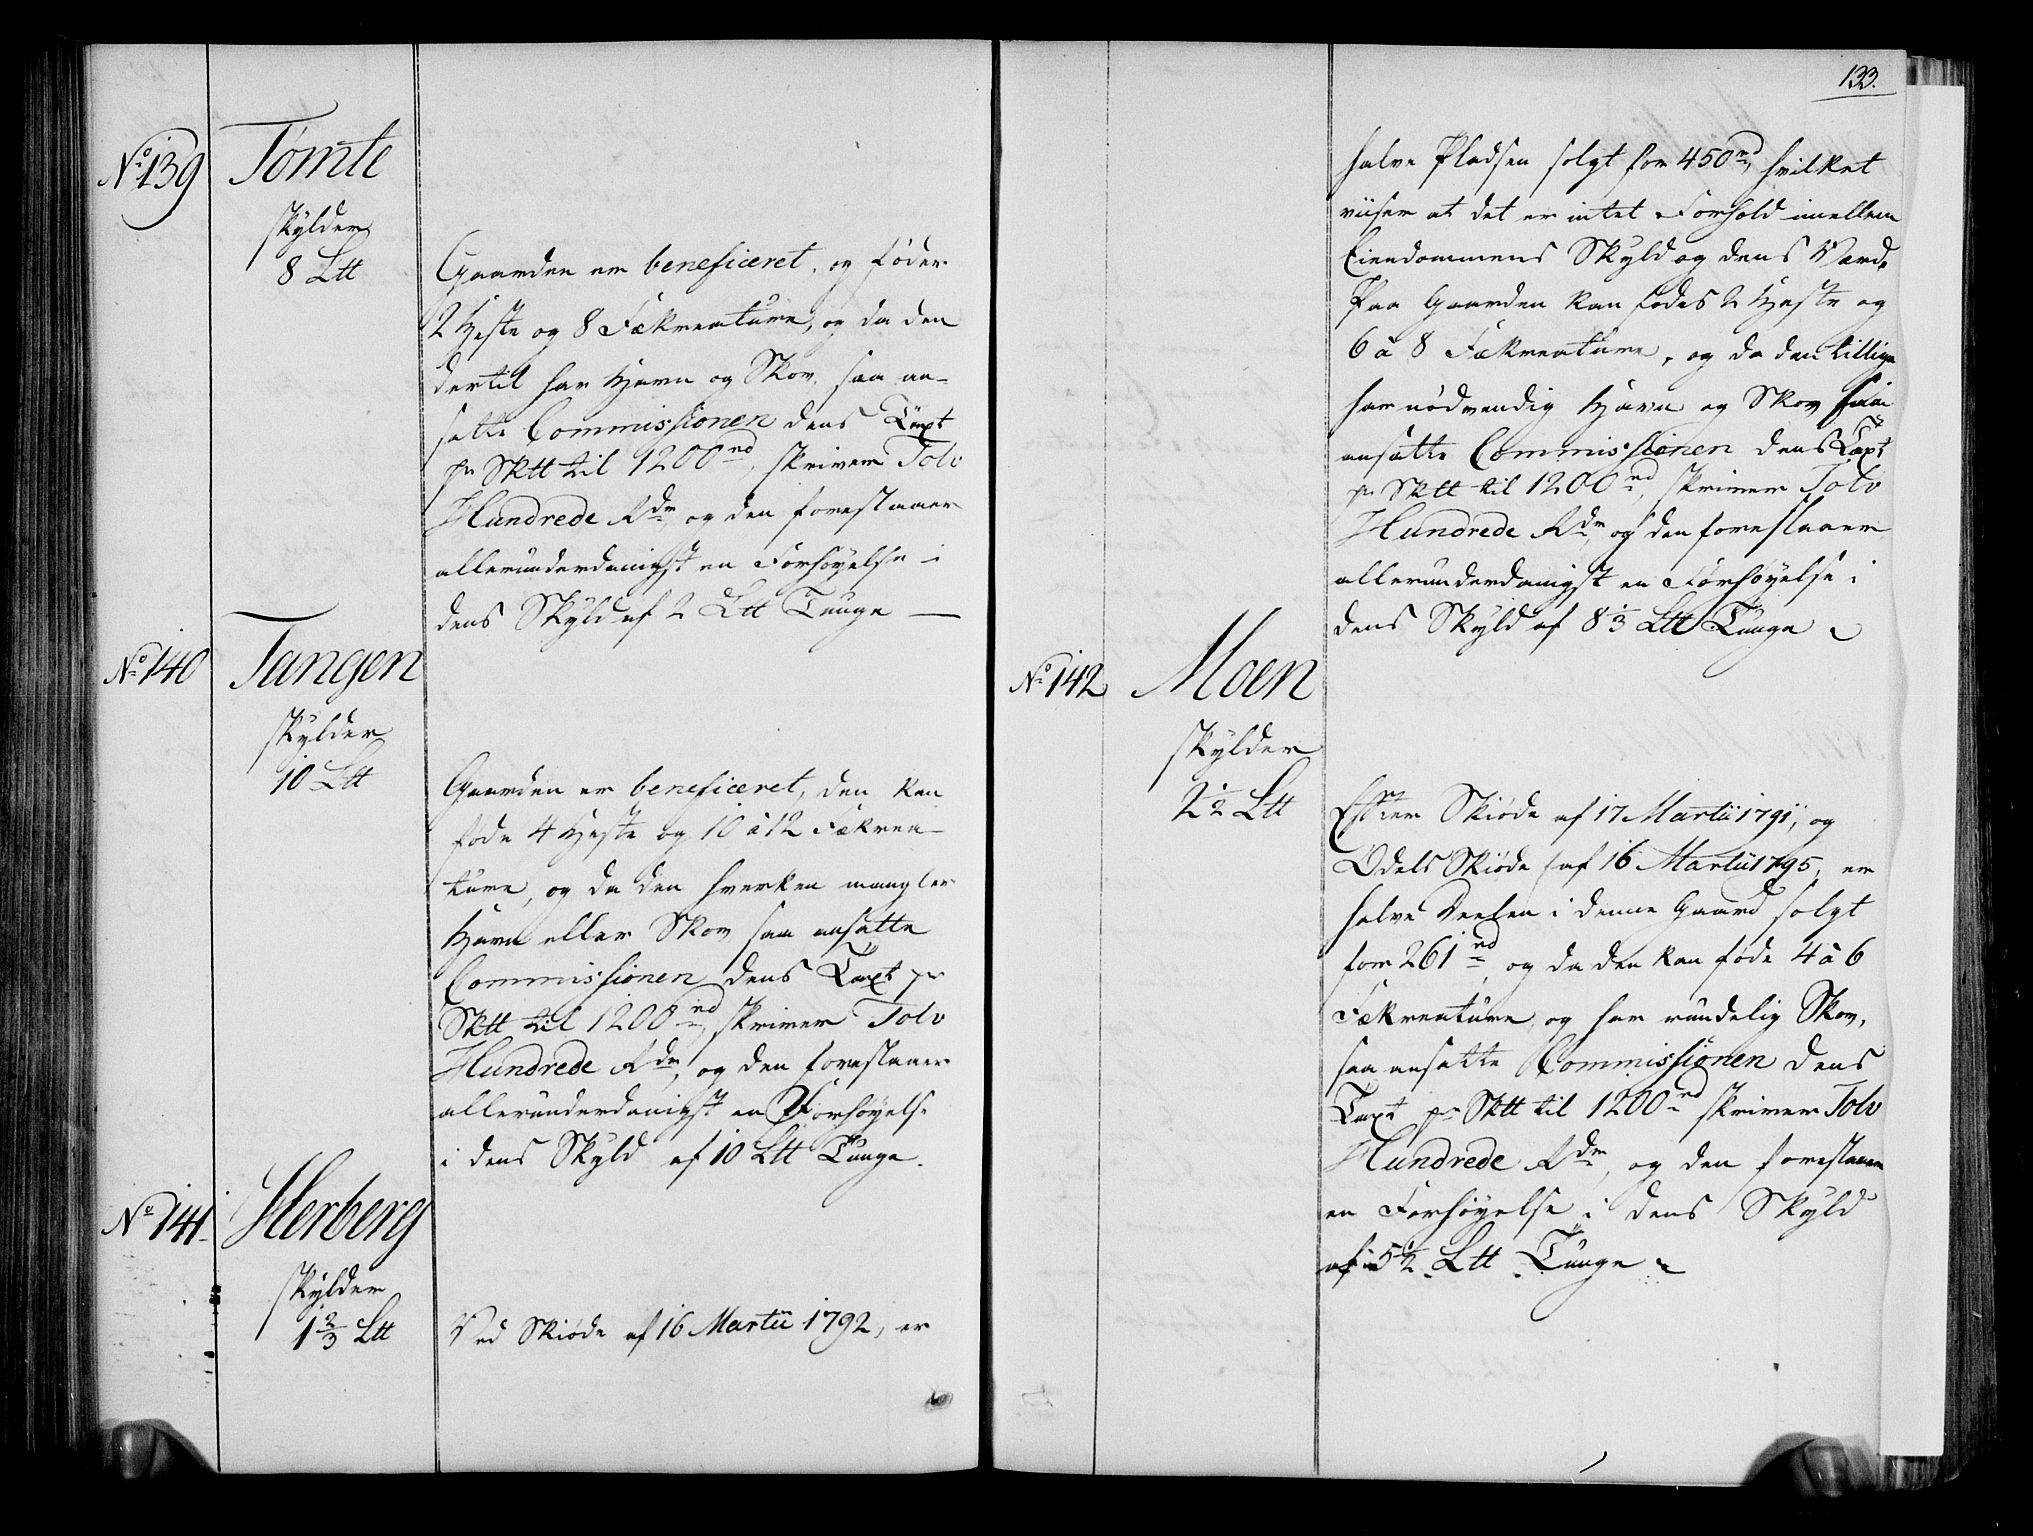 No 139
Tømte
skylder
8 Ltt
Gaarden er beneficeret, og føder
2 Heste og 8 Fækreature, og da den
dertil har Havn og Skov, saa an-
satte Commissionen dens Taxt
pr Sktt til 1200 rd, skriver Tolv
Hundrede Rdr og den forestaaer
allerunderdanigst en Forhøyelse i
dens Skyld af 2 Ltt Tunge
No 140
Tangen
skylder
10 Ltt
Gaarden er beneficeret, den kan
føde 4 Heste og 10 à 12 Fækrea-
ture, og da den hverken mangler
Havn eller Skov saa ansatte
Commissionen dens Taxt pr
Sktt til 1200 rd, skriver Tolv
Hundrede Rdr, og den forestaaer
allerunderdanigst en Forhøyelse
i dens Skyld af 10 Ltt Tunge.
No 141
Herberg
skylder
1 2/3 Ltt
Ved Skiøde af 16 Martii 1792, er
133.
halve Pladsen solgt for 450 rd, hvilket
viiser at det er intet Forhold imellem
Eiendommens Skyld og dens Værd.
Paa Gaarden kan fødes 2 Heste og
6 à 8 Fækreature, og da den tillige
har nødvendig Havn og Skov saa
ansatte Commissionen dens Taxt
pr Sktt til 1200 rd, skriver Tolv
Hundrede Rdr, og den forestaaer
allerunderdanigst en Forhøyelse i
dens Skyld af 8 1/3 Ltt Tunge
No 142
Moen
skylder
2 1/2 Ltt
Efter Skiøde af 17 Martii 1791, og
Odels Skiøde af 16 Martii 1795, er
halve Deelen i denne Gaard solgt
for 261 rd, og da den kan føde 4 à 6
Fækreature, og har rundelig Skov,
saa ansatte Commissionen dens
Taxt pr Sktt til 1200 rd skriver Tolv
Hundrede Rdr, og den forestaaer
en Forhøyelse i dens Skyld
af 5 1/2 Ltt Tunge